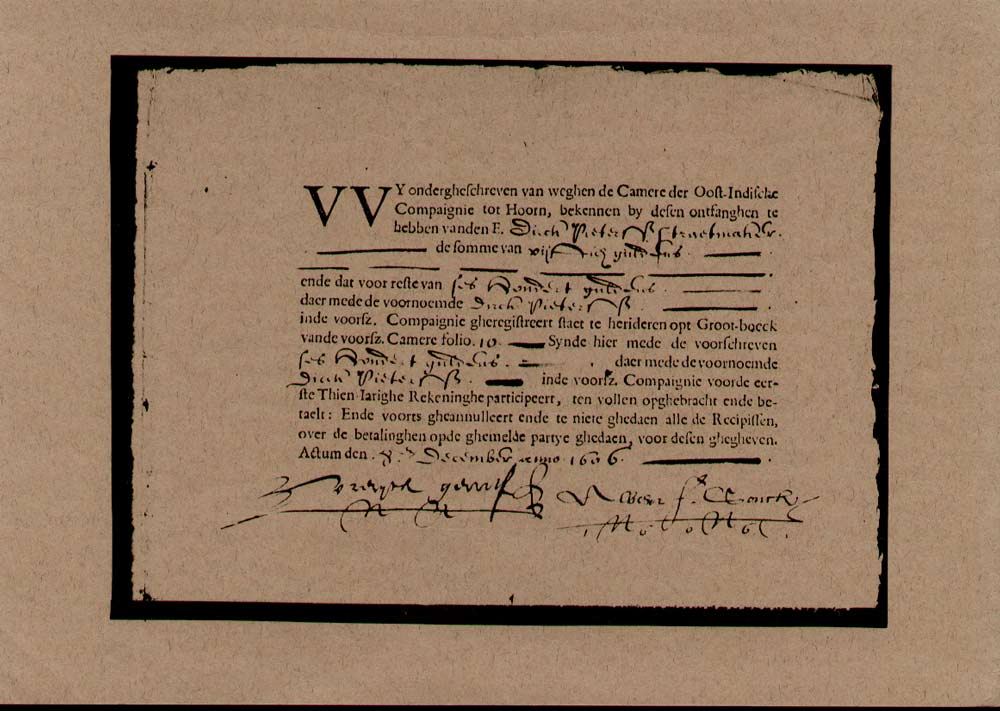 VVY ondergheschreven van weghen de Camere der Oost-Indische
Compaignie tot Hoorn, bekennen by desen ontfanghen te
hebben vanden E. Dirck Pietersz Straetmaker.
de somme van vijftich guldens.
ende dat voor reste van ses hondert guldens
daer mede de voornoemde Dirck Pietersz
inde voorsz. Compaignie gheregistreert staet te herideren opt Groot-boeck
vande voorsz. Camere folio. 10. Synde hier mede de voorschreven
ses hondert guldens. daer mede de voornoemde
Dirck Pietersz. inde voorsz. Compaignie voorde eer-
ste Thien-Iarighe Rekeninghe participeert, ten vollen opghebracht ende be-
taelt: Ende voorts gheannulleert ende te niete ghedaen alle de Recipissen,
over de betalinghen opde ghemelde partye ghedaen, voor desen ghegheven.
Actum den. December anno. 1606.